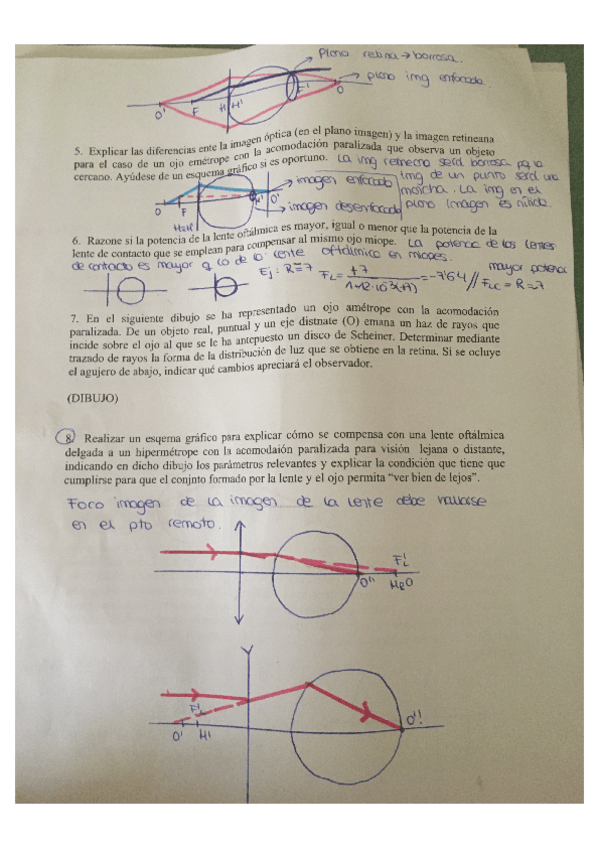 Plano retina → borrosa.
→ plano img enfocada
O' F H H' F' O
5. Explicar las diferencias ente la imagen óptica (en el plano imagen) y la imagen retineana
para el caso de un ojo emétrope con la acomodación paralizada que observa un objeto
cercano. Ayúdese de un esquema gráfico si es oportuno. La img retineana será borrosa
img de un punto será una
mancha. La img en el
plano imagen es nítida.
→ imagen enfocada
→ imagen desenfocada
O F H≡H' O'
6. Razone si la potencia de la lente oftálmica es mayor, igual o menor que la potencia de la
lente de contacto que se emplean para compensar al mismo ojo miope. La potencia de las lentes
de contacto es mayor q la de la lente oftálmica en miopes.
mayor potencia
7. En el siguiente dibujo se ha representado un ojo amétrope con la acomodación
paralizada. De un objeto real, puntual y un eje distnate (O) emana un haz de rayos que
incide sobre el ojo al que se le ha antepuesto un disco de Scheiner. Determinar mediante
trazado de rayos la forma de la distribución de luz que se obtiene en la retina. Si se ocluye
el agujero de abajo, indicar qué cambios apreciará el observador.
(DIBUJO)
8. Realizar un esquema gráfico para explicar cómo se compensa con una lente oftálmica
delgada a un hipermétrope con la acomodaión paralizada para visión lejana o distante,
indicando en dicho dibujo los parámetros relevantes y explicar la condición que tiene que
cumplirse para que el conjnto formado por la lente y el ojo permita “ver bien de lejos”.
Foco imagen de la imagen de la lente debe
en el pto remoto.
F'L
O'' MRO
F'L
O' O'!